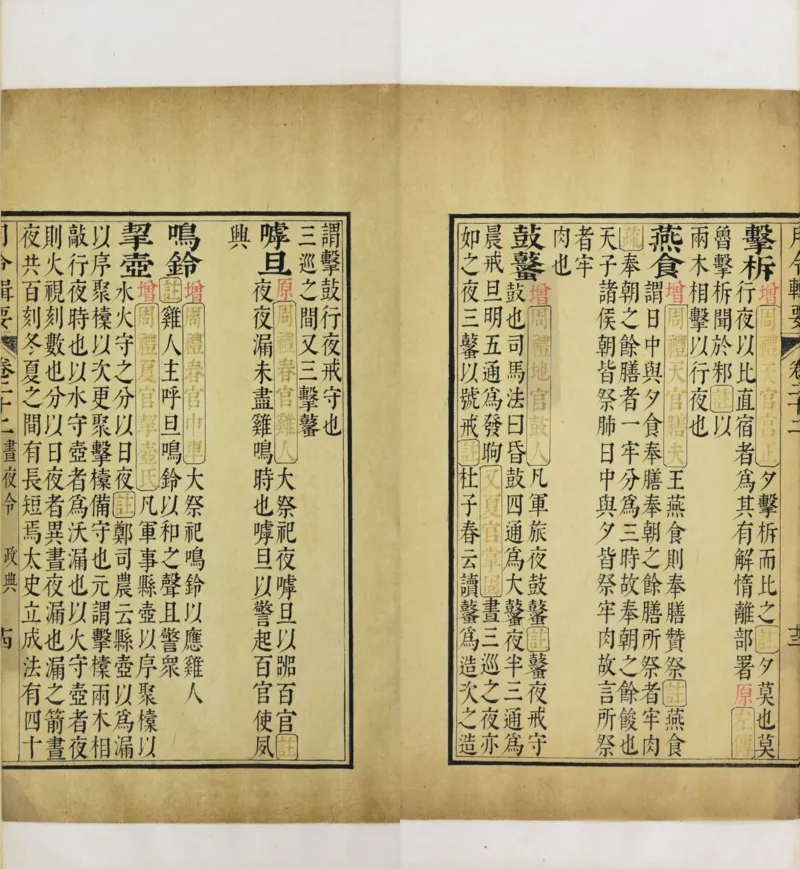 月令輯要 卷二十二
擊柝
增周禮天官宮正夕擊柝而比之註夕莫也莫
行夜以比直宿者為其有解惰離部署原左傳
魯擊柝聞於邾註以
兩木相擊以行夜也
燕食
增周禮天官膳夫王燕食則奉膳贊祭註燕食
謂日中與夕食奉膳奉朝之餘膳所祭者牢肉
疏奉朝之餘膳者一牢分為三時故奉朝之餘餕也
天子諸侯朝皆祭肺日中與夕皆祭牢肉故言所祭
者牢
肉也
鼓鼜
增周禮地官鼓人凡軍旅夜鼓鼜註鼜夜戒守
鼓也司馬法曰昏鼓四通為大鼜夜半三通為
晨戒旦明五通為發昫又夏官掌固晝三巡之夜亦
如之夜三鼜以號戒註杜子春云讀鼜為造次之造
謂擊鼓行夜戒守也
三巡之間又三擊鼜
嘑旦
原周禮春官雞人大祭祀夜嘑旦以嘂百官註
夜夜漏未盡雞鳴時也嘑旦以警起百官使夙
興
鳴鈴
增周禮春官巾車大祭祀鳴鈴以應雞人
註雞人主呼旦鳴鈴以和之聲且警衆
挈壺
增周禮夏官挈壺氏凡軍事縣壺以序聚㯓以
水火守之分以日夜註鄭司農云縣壺以為漏
以序聚㯓以次更聚擊㯓備守也元謂擊㯓兩木相
敲行夜時也以水守壺者為沃漏也以火守壺者夜
則火視刻數也分以日夜者異晝夜漏也漏之箭晝
夜共百刻冬夏之間有長短焉太史立成法有四十
月令輯要 卷二十二 晝夜令 政典 十四